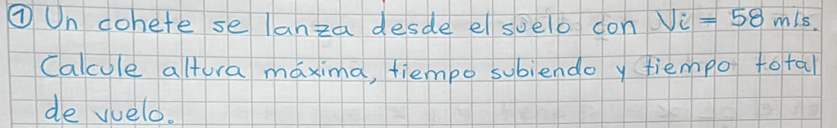 ① Un cohete se lanza desde el suelo con Vi = 58 m/s.
Calcule altura máxima, tiempo subiendo y tiempo total
de vuelo.